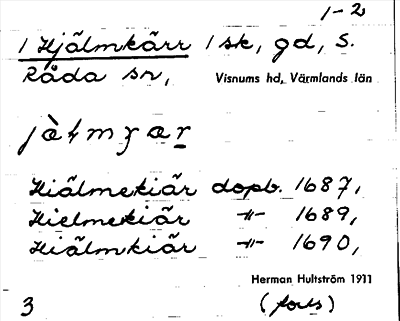 1-2
1 Hjälmkärr 1 sk, gd, S.
Råda sn, Visnums hd, Värmlands län
Hiälmekiär dopb. 1687,
Hielmekiär -"- 1689,
Hiälmkiär -"- 1690,
Herman Hultström 1911
3 (forts)